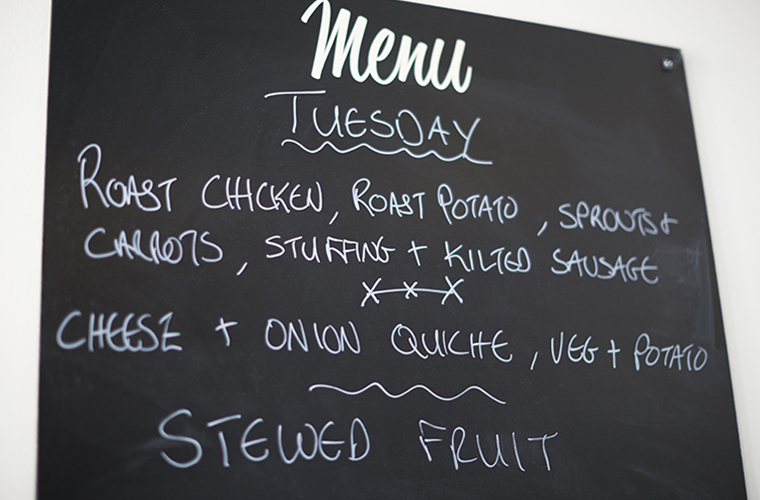 Menu
TUESDAY
ROAST CHICKEN, ROAST POTATO, SPROUTS +
CARROTS, STUFFING + KILTED SAUSAGE
CHEESE + ONION QUICHE, VEG + POTATO
STEWED FRUIT